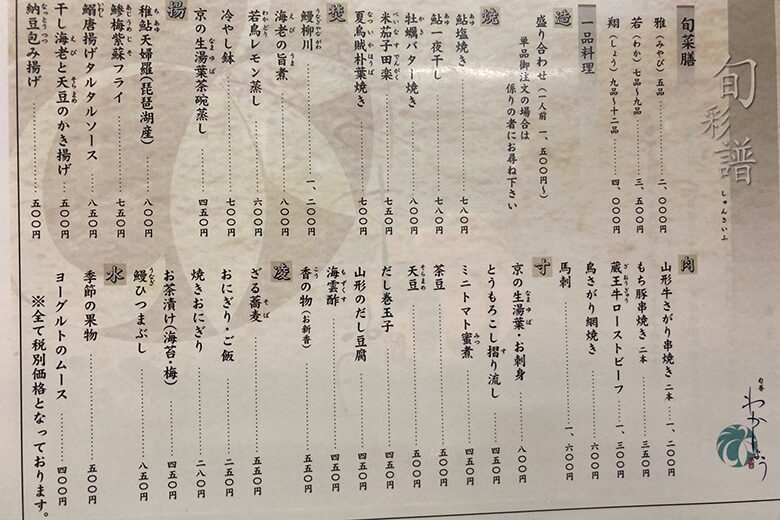 旬彩譜
しゅんさいふ
旬菜膳
雅（みやび）五品 二、〇〇〇円
若（わか）七品〜九品 三、五〇〇円
翔（しょう）九品〜十二品 四、〇〇〇円
一品料理
造
盛り合わせ（一人前 一、五〇〇円〜）
単品御注文の場合は
係りの者にお尋ね下さい
焼
鮎塩焼き 七八〇円
鮎一夜干し 七八〇円
牡蠣バター焼き 七八〇円
米茄子田楽 七五〇円
夏鳥賊朴葉焼き 七〇〇円
焚
鰻柳川 一、二〇〇円
海老の旨煮 七〇〇円
若鳥レモン蒸し 六〇〇円
冷やし鉢 七〇〇円
京の生湯葉茶碗蒸し 四五〇円
揚
稚鮎天婦羅（琵琶湖産） 八〇〇円
鯵梅紫蘇フライ 七五〇円
鰯唐揚げタルタルソース 八五〇円
干し海老と天豆のかき揚げ 五〇〇円
納豆包み揚げ 五〇〇円
肉
山形牛さがり串焼き 二本 一、二〇〇円
もち豚串焼き 二本 三五〇円
蔵王牛ローストビーフ 一、三〇〇円
鳥さがり網焼き 六〇〇円
馬刺 一、六〇〇円
寸
京の生湯葉・お刺身 八〇〇円
とうもろこし摺り流し 四五〇円
ミニトマト蜜煮 四五〇円
茶豆 四五〇円
天豆 四五〇円
だし巻玉子 四五〇円
山形のだし豆腐 四五〇円
海雲酢 四五〇円
香の物（お新香） 五〇〇円
凌
ざる蕎麦 五五〇円
おにぎり・ご飯 二五〇円
焼きおにぎり 二八〇円
お茶漬け（海苔・梅） 四五〇円
鰻ひつまぶし 八五〇円
水
季節の果物 五〇〇円
ヨーグルトのムース 四〇〇円
※全て税別価格となっております。
旬香
わかしょう